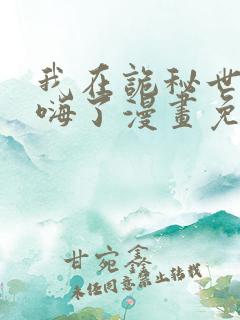 我在詭秘世
嗨了漫畫免
甘宛鑫
未经同意禁止转载